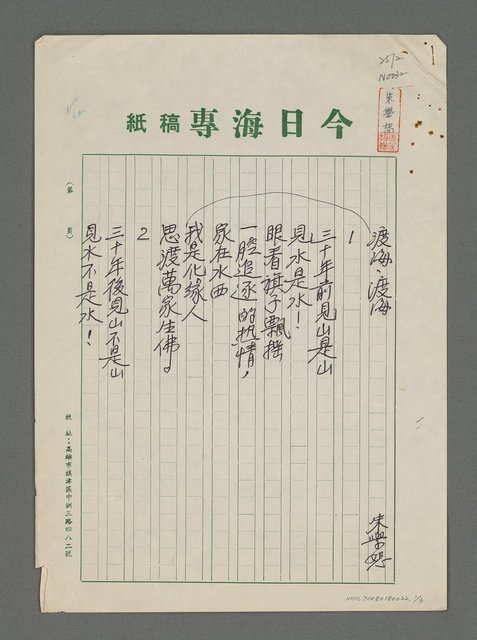 2572
N0032
今日海專稿紙
渡海、渡海
朱學恕
1
三十年前見山是山
見水是水！
眼看旗子飄搖
一腔追逐的热情，
家在水西
我是化緣人
思渡萬家生佛。
2
三十年後見山不是山
見水不是水！
（第　頁）
校址：高雄市旗津區中洲三路四八二號
NMTL20080180032, 1/3